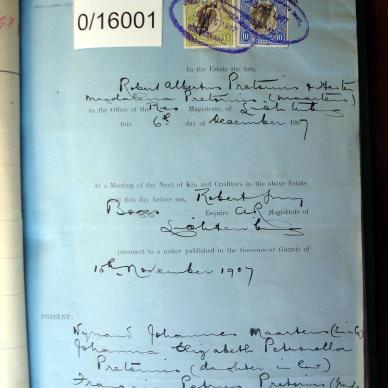 0/16001
In the Estate the late,
Robert Albertus Pretorius & Hester
Magdalena Pretorius (Maartens)
in the Office of the Res Magistrate, of
this 6th day of December 1907
At a Meeting of the Next of Kin and Creditors in the above Estate
this day before me, Robert
Esquire Magistrate of
pursuant to a notice published in the Government Gazette of
15th November 1907
PRESENT:
Wynand Johannes Maartens
Johanna Elizabeth Petronella
Pretorius (daughter in law)
Pretorius